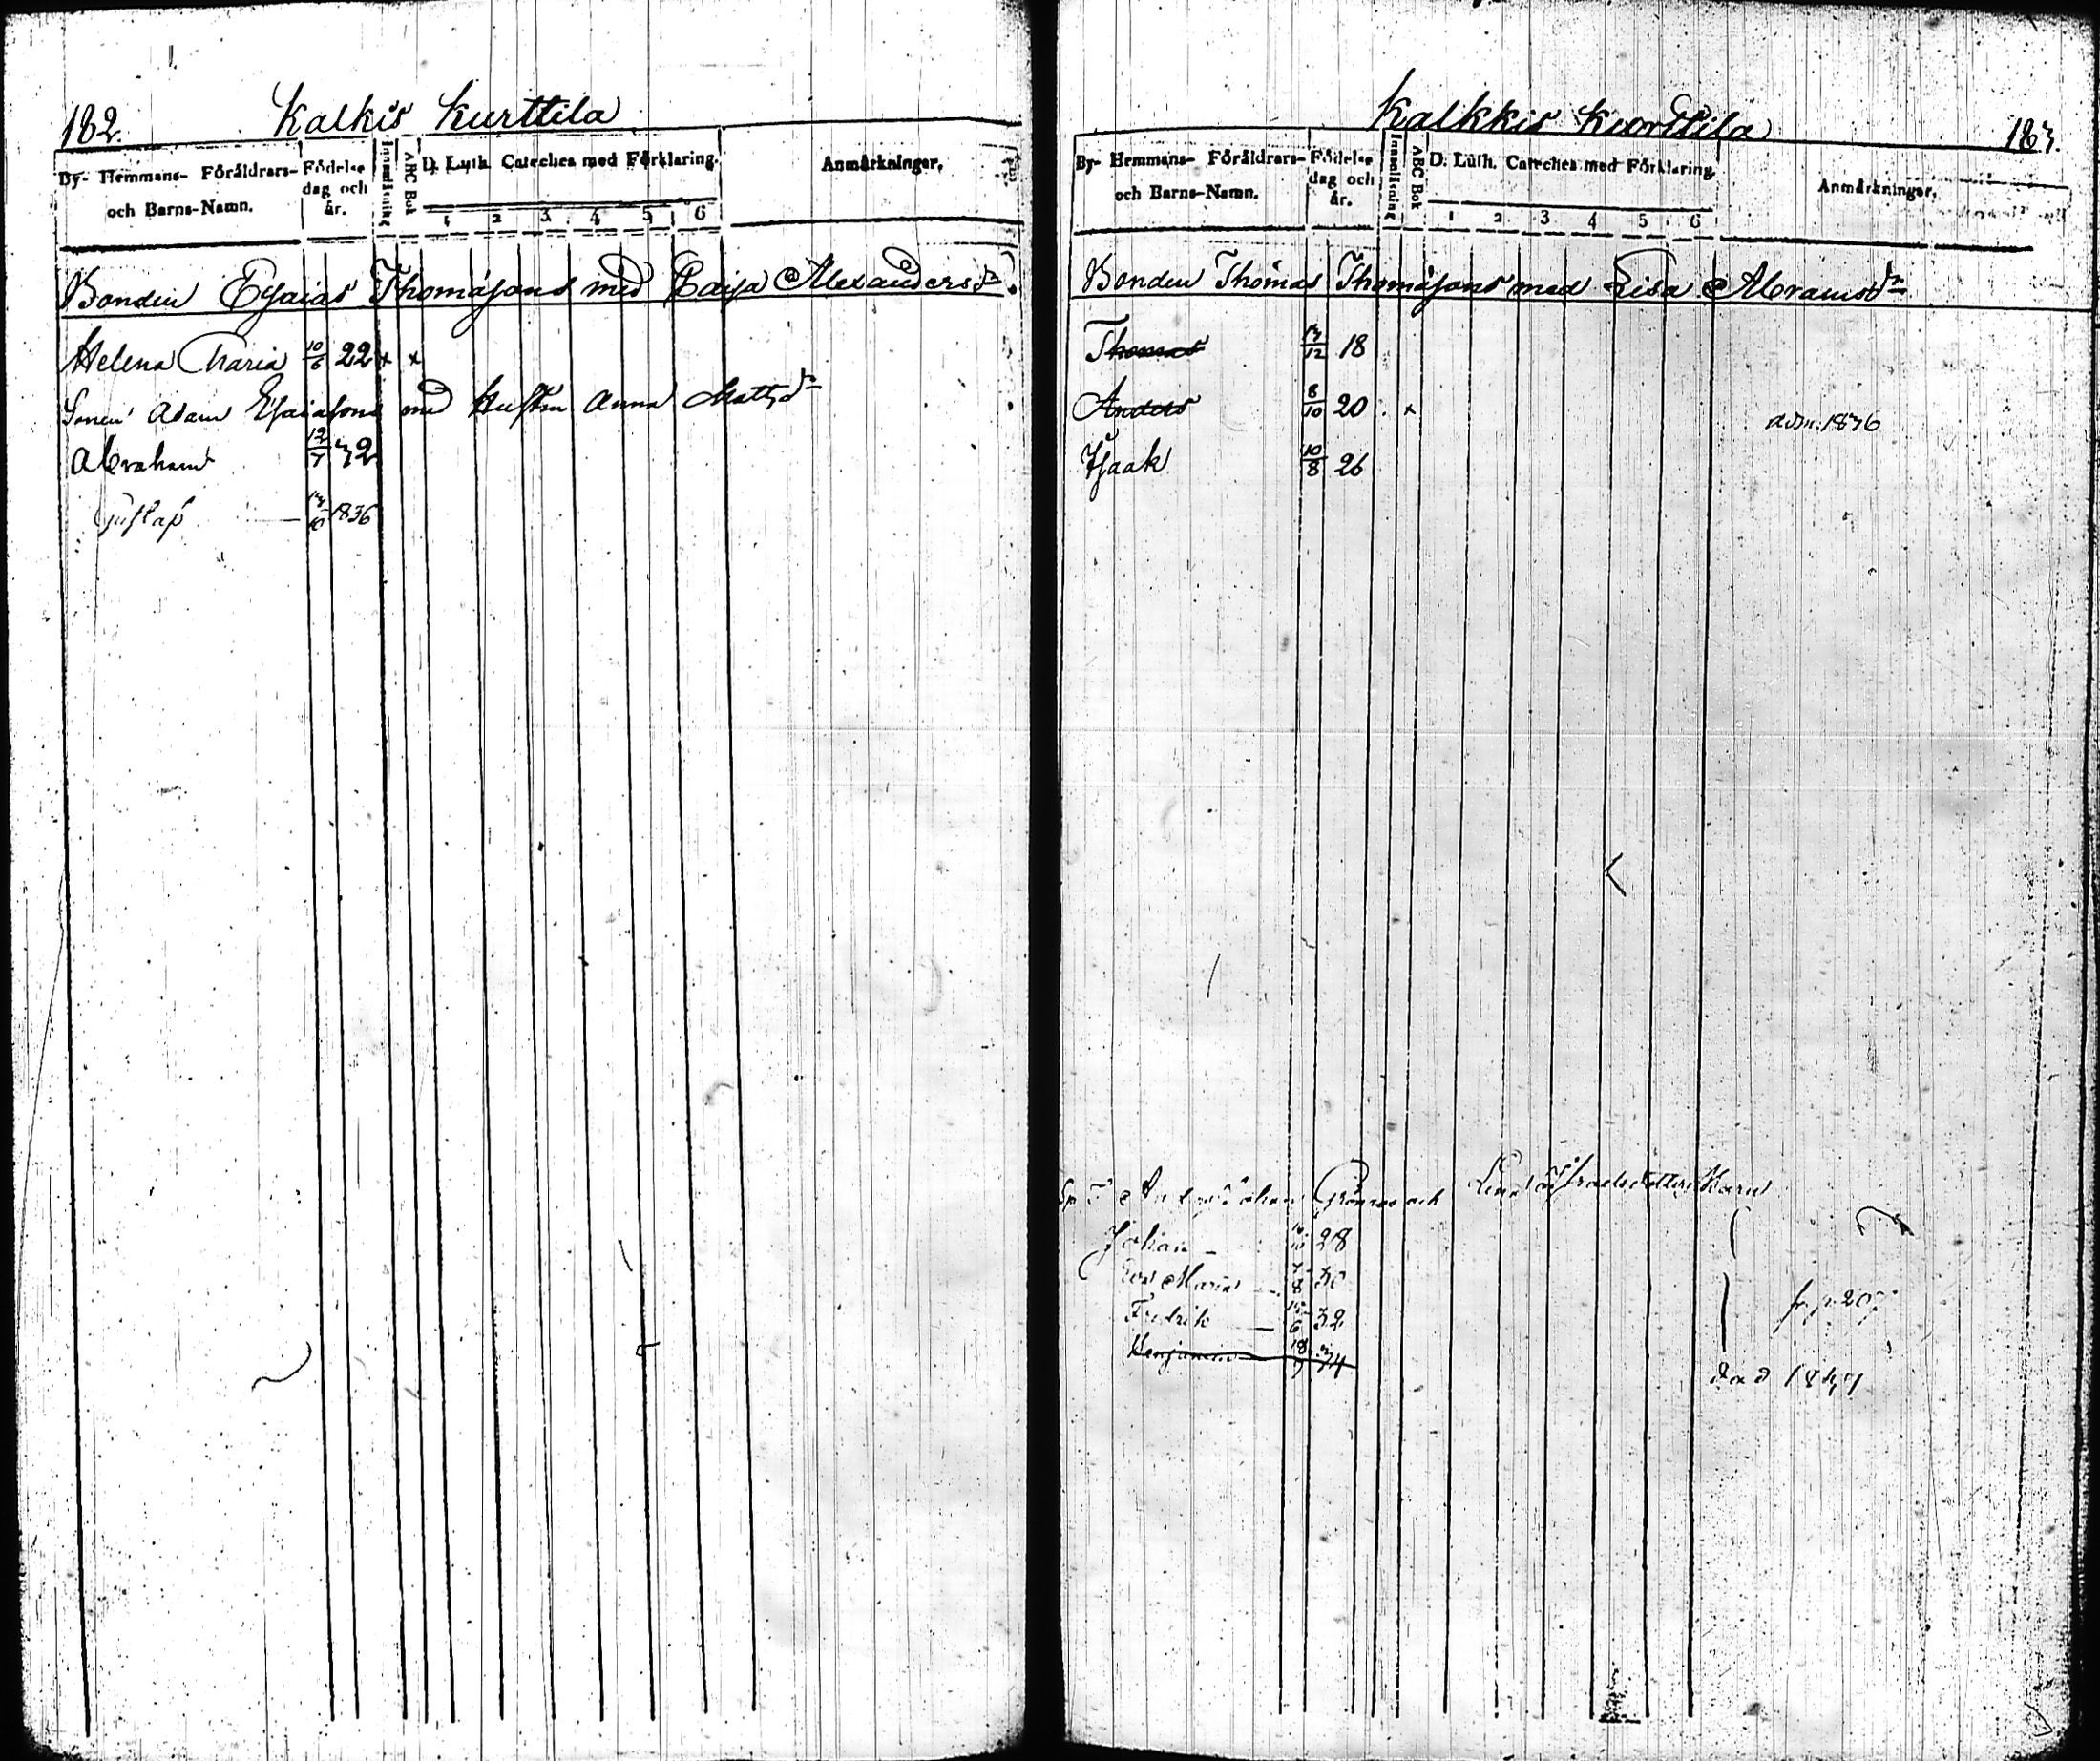 182.
Kalkis Kurttila
By- Hemmans- Föräldrars- och Barns-Namn.
Födelse dag och år.
Innanläsning
ABC Bok
D. Luth. Cateches med Förklaring.
1 2 3 4 5 6
Anmärkningar.
Bonden Esaias Thomasons med Caisa Alexandersdr.
Helena Maria 10/6 22 x x
Sonen Adam Esaiasons med Hustru Anna Mattsdr
Abraham 12/7 32
Gustaf — 13/10 1836
Kalkkis Kurttila
183.
By- Hemmans- Föräldrars- och Barns-Namn.
Födelse dag och år.
Innanläsning
ABC Bok
D. Luth. Cateches med Förklaring.
1 2 3 4 5 6
Anmärkningar.
Bonden Thomas Thomasons med Lisa Abramsdr
Thomas 13/12 18
Anders 8/10 20 x adm. 1836
Isaak 10/8 26
Johan 28
Maria 30
Fredrik — 32
Benjamin 18/9 34
fr. p. 207
död 1837